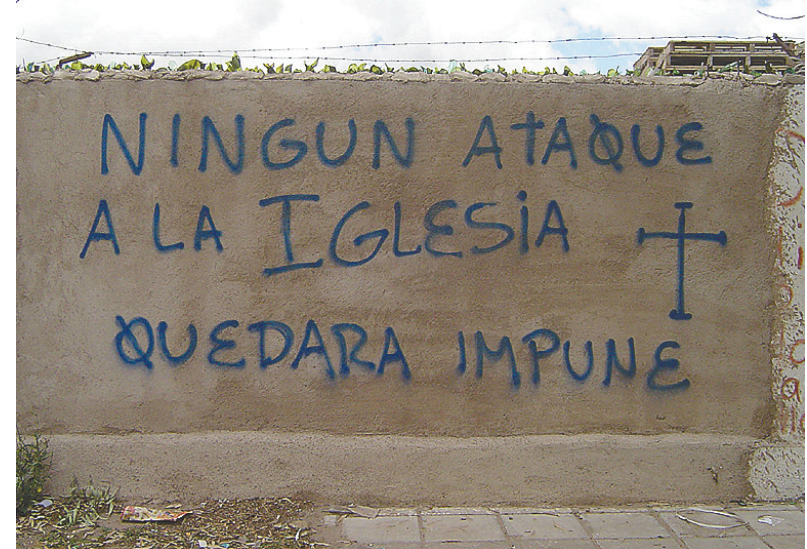 NINGUN ATAQUE
A LA IGLESiA
QUEDARA IMPUNE